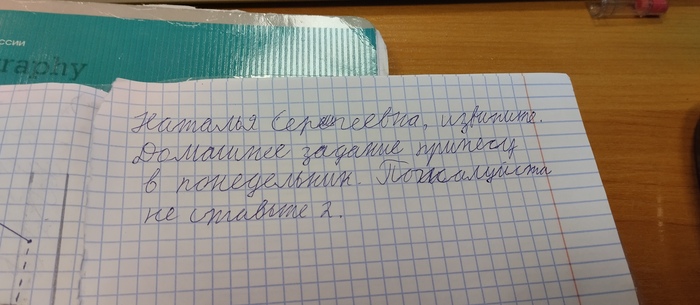 ссии
raphy
Наталья Сергеевна, извините.
Домашнее задание принесу
в понедельник. Пожалуйста
не ставьте 2.